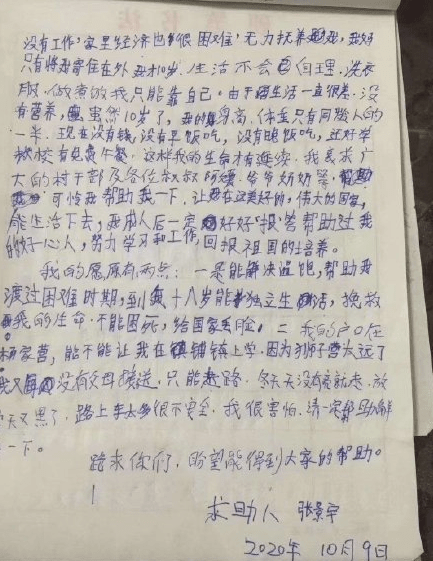 没有工作,家里经济也很困难,无力抚养我,我好
只有将我寄住在外 我才10岁 生活不会自理.洗衣
服,做着饭我只能靠自己.由于生活一直很差.没
有营养,虽然10岁了,我的身高、体重只有同龄人的
一半.现在没有钱,没有早饭吃,没有晚饭吃,还好学
校有免费午餐.这样我的生命才有延续.我恳求广
大的村干部及各位叔叔阿姨.爷爷奶奶等
可怜我帮助我一下,让我在这美好的,伟大的国家,
能生活下去,我成人后一定好好报答帮助过我
的好心人,努力学习和工作回报祖国的培养。
我的愿原有两点:一是能解决温饱,帮助我
渡过困难时期,到我十八岁能独立生活,挽救
我的生命.不能困死,给国家丢脸。二 我的户口在
杨家营,能不能让我在镇铺镇上学.因为狮子营太远了
我又没有父母接送.只能赶路.冬天天没有亮就走.放
天又黑了.路上车太多很不安全.我很害怕.请一定帮助解
一下。
跪求你们,盼望能得到大家的帮助。
求助人 张景宇
2020年 10月9日